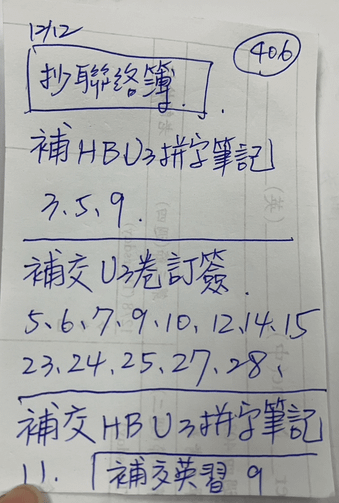 12/12
406
抄聯絡簿
補HBU3拼字筆記
3、5、9.
補交U3卷訂簽.
5、6、7、9、10、12、14、15
23、24、25、27、28、
補交HBU3拼字筆記
11. 補交英習 9